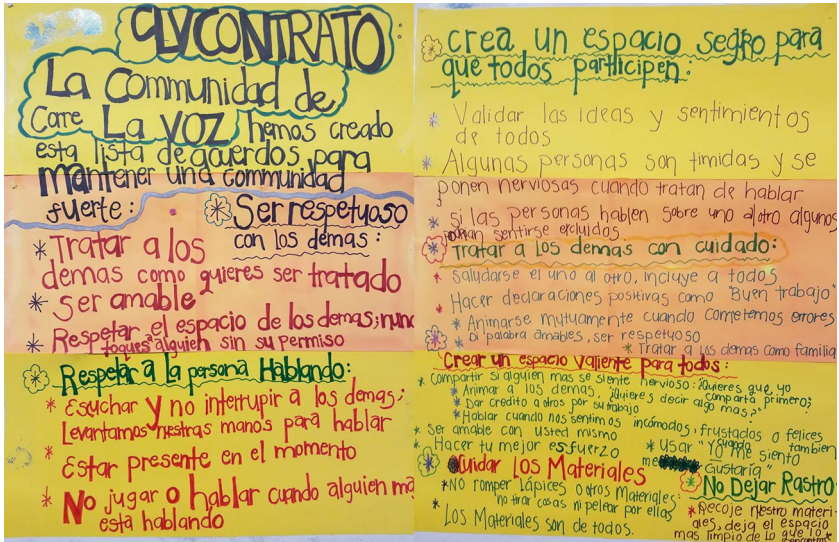 CLV CONTRATO:
La Communidad de
Care La VOZ hemos creado
esta lista de acuerdos para
mantener una communidad
fuerte:
Ser respetuoso
con los demas:
* Tratar a los
demas como quieres ser tratado
* Ser amable
* Respetar el espacio de los demas; nunc
toques alguien sin su permiso
Respetar a la persona Hablando:
* Esuchar y no interrupir a los demas;
Levantamos nuestras manos para hablar
* Estar presente en el momento
* No jugar o hablar cuando alguien ma
esta hablando
crea un espacio segro para
que todos participen:
* Validar las ideas y sentimientos
de todos
* Algunas personas son timidas y se
ponen nerviosas cuando tratan de hablar
* si las personas hablen sobre uno al otro algunos
podrian sentirse excluidos
Tratar a los demas con cuidado:
* Saludarse el uno al otro, incluye a todos
* Hacer declaraciones positivas como "Buen trabajo"
* Animarse mutuamente cuando cometemos errores
* Di palabra amables, ser respetuoso
* Tratar a los demas como familia
Crear un espacio valiente para todos:
* Compartir si alguien mas se siente nervioso: ¿Quieres que yo
comparta primero?
* Animar a los demas, ¿quieres decir algo mas?"
* Dar credito a otros por su trabajo
* Hablar cuando nos sentimos incómodos, frustados o felices
* Ser amable con usted mismo
* Hacer tu mejor esfuerzo
* Usar "Yo me siento cuando
tambien
me Gustaria"
Cuidar Los Materiales
* No romper lápices o otros materiales:
no tirar cosas ni pelear por ellas
* Los Materiales son de todos.
No Dejar Rastro
* Recoje nuestro materi-
ales, deja el espacio
mas limpio de lo que lo